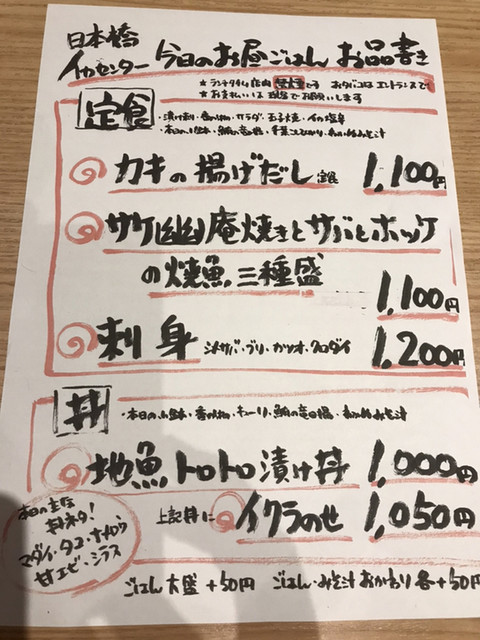 日本橋
イカセンター 今日のお昼ごはん お品書き
★ランチタイム店内禁煙です おタバコはエントランスで
★お支払いは現金でお願いします
定食
・漬け刺し・香の物・サラダ・玉子焼・イカ塩辛
カキの揚げだし 定食 1,100円
サケ幽庵焼きとサバとホッケ
の焼魚三種盛
1,100円
刺身 シメサバ・ブリ・カツオ・クロダイ 1,200円
丼
・本日の小鉢・香の物・
地魚トロトロ漬け丼 1,000円
上記丼に イクラのせ 1,050円
本日の主な
丼ネタ!
マダイ・タコ・
甘エビ・シラス
ごはん大盛+50円 ごはん・みそ汁おかわり各+50円